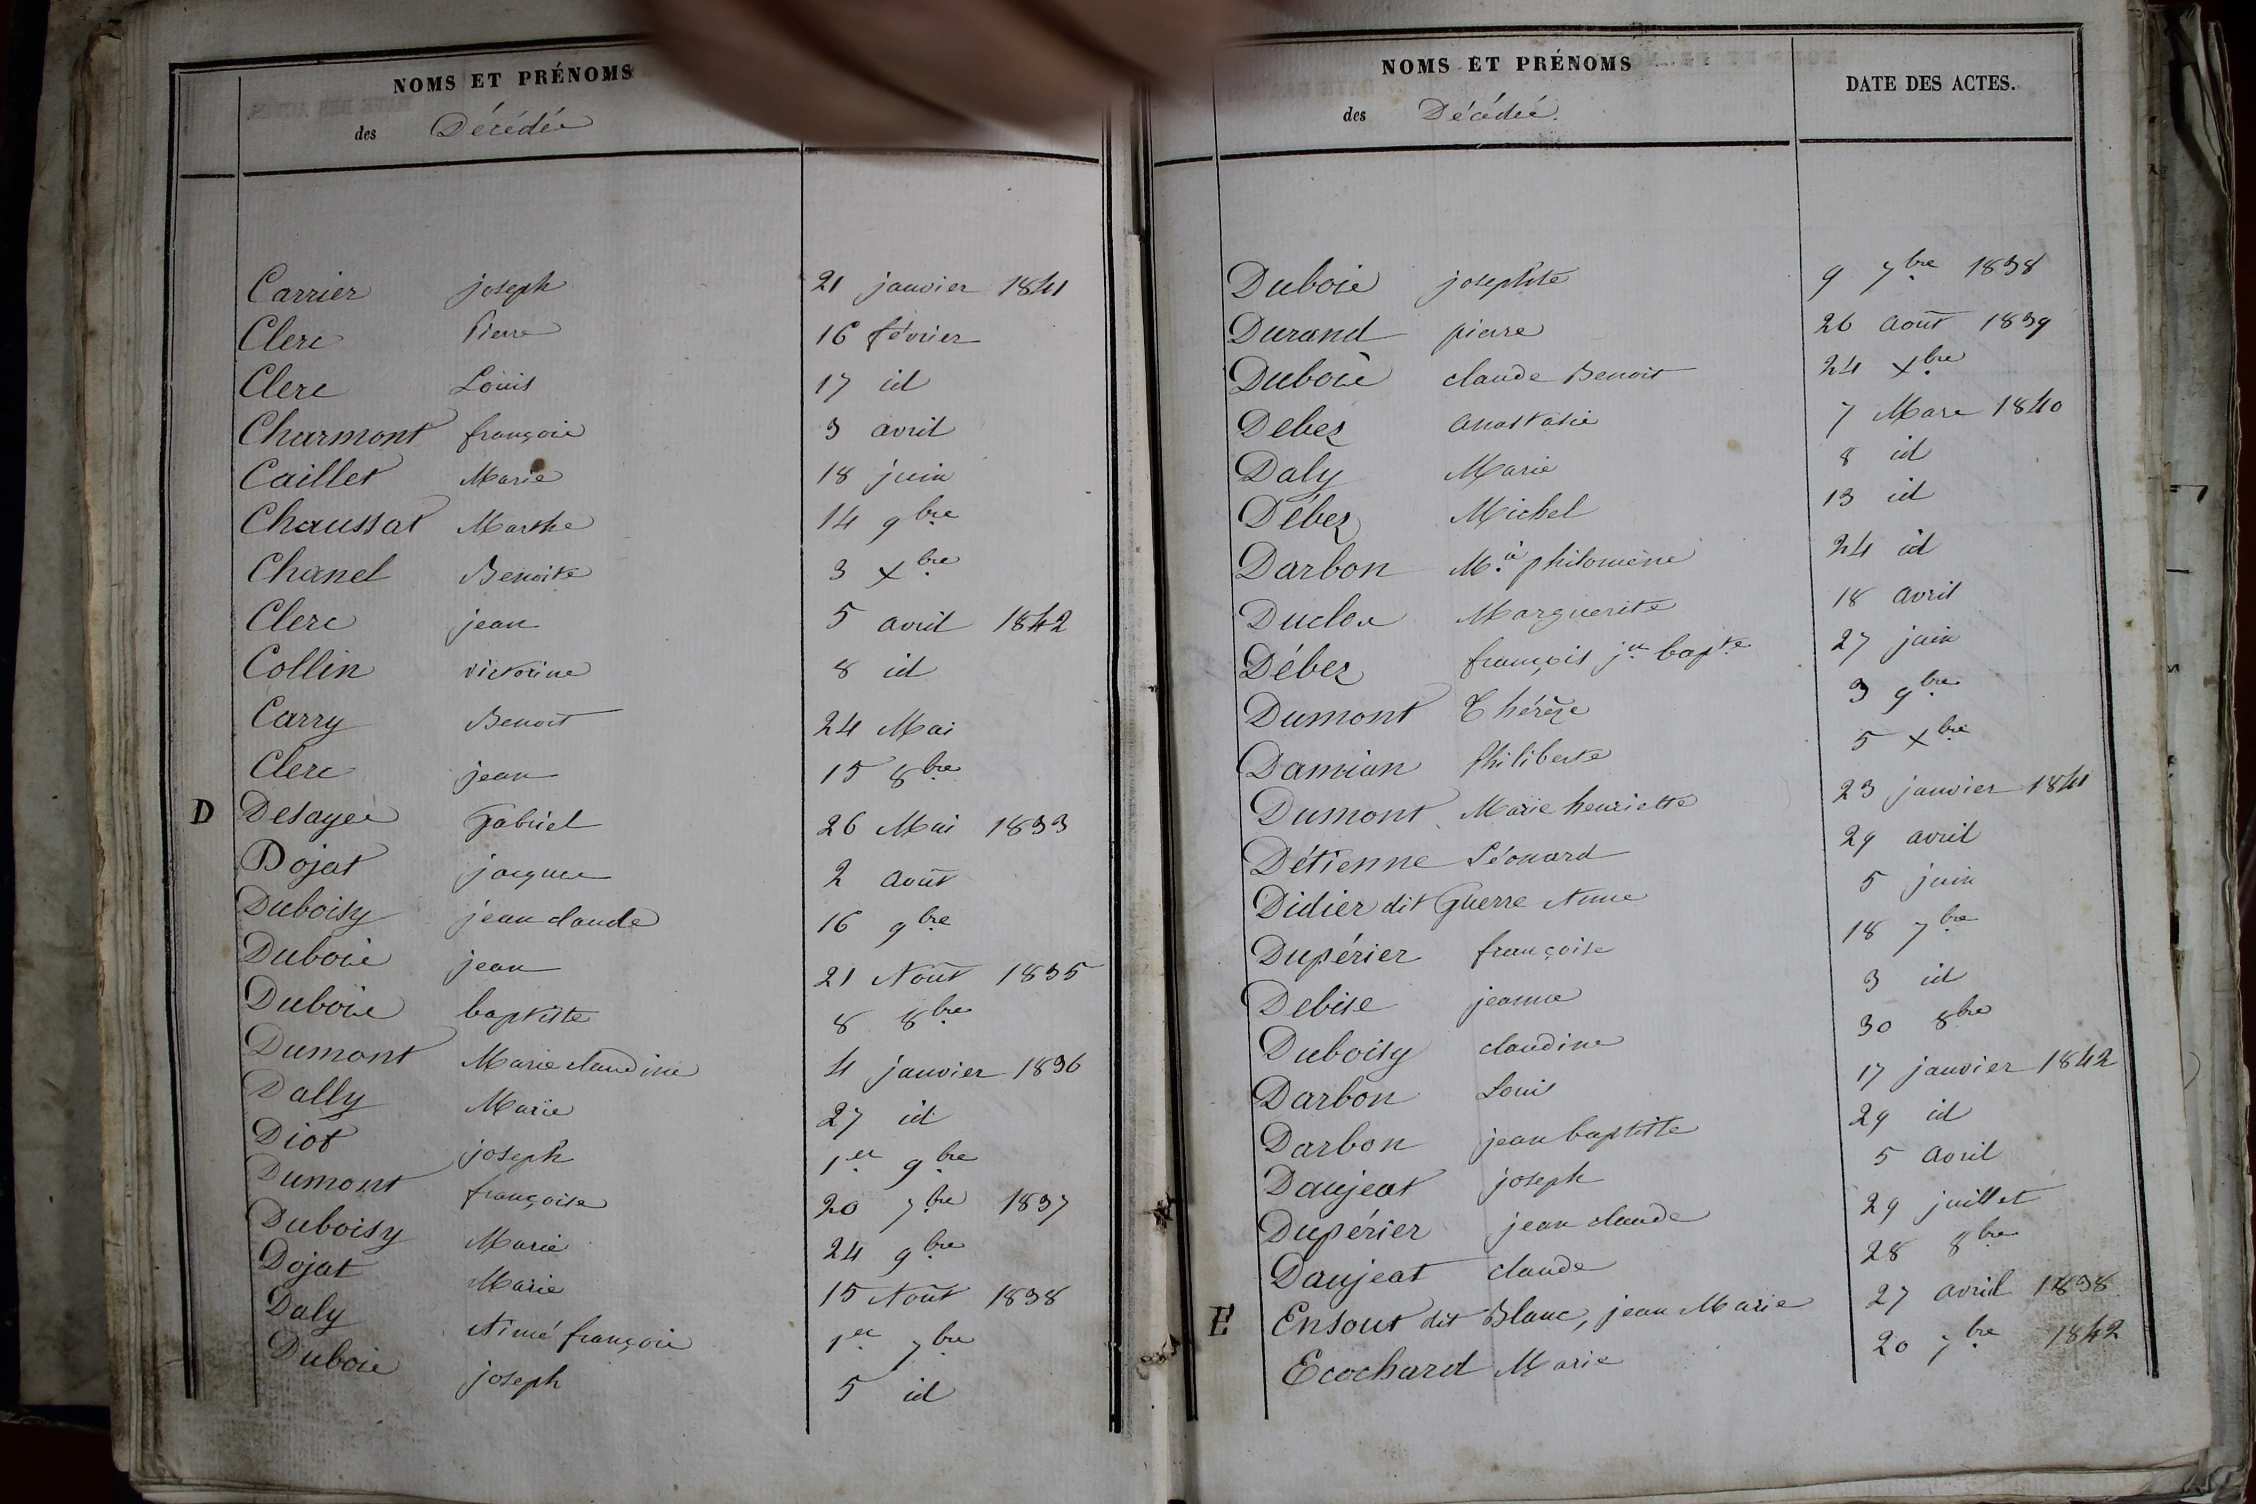 NOMS ET PRÉNOMS
des Décédés
Carrier joseph 21 janvier 1841
Clerc Pierre 16 février
Clerc Louis 17 id
Charmont françois 3 avril
Caillet Marie 18 juin
Chaussat Marthe 14 9bre
Chanel Benoite 3 Xbre
Clerc jean 5 avril 1842
Collin victorine 8 id
Carry Benoit 24 Mai
Clerc jean 15 8bre
D Desayes Gabriel 26 Mai 1833
Dojat jacques 2 Août
Duboisy jean claude 16 9bre
Dubois jean 21 Août 1835
Dubois baptiste 8 8bre
Dumont Marie claudine 4 janvier 1836
Dally Marie 27 id
Diot joseph 1er 9bre
Dumont françoise 20 7bre 1837
Duboisy Marie 24 9bre
Dojat Marie 15 Août 1838
Daly Aimé françois 1er 7bre
Dubois joseph 5 id
NOMS ET PRÉNOMS
des Décédés.
DATE DES ACTES.
Dubois josephte 9 7bre 1838
Durand pierre 26 Août 1839
Dubois claude Benoit 24 Xbre
Debez Anastasie 7 Mars 1840
Daly Marie 8 id
Débez Michel 13 id
Darbon Mie philomène 24 id
Duclos Marguerite 18 Avril
Débez françois jn bapte 27 juin
Dumont Thérèze 3 9bre
Damian Philiberte 5 Xbre
Dumont Marie henriette 23 janvier 1841
Détienne Léonard 29 avril
Didier dit Guerre Anne 5 juin
Dupérier françoise 18 7bre
Debise jeanne 3 id
Duboisy claudine 30 8bre
Darbon Louis 17 janvier 1842
Darbon jean baptiste 29 id
Daujeat joseph 5 Avril
Dupérier jean claude 29 juillet
Daujeat claude 28 8bre
E Ensout dit Blanc, jean Marie 27 avril 1838
Ecochard Marie 20 7bre 1842